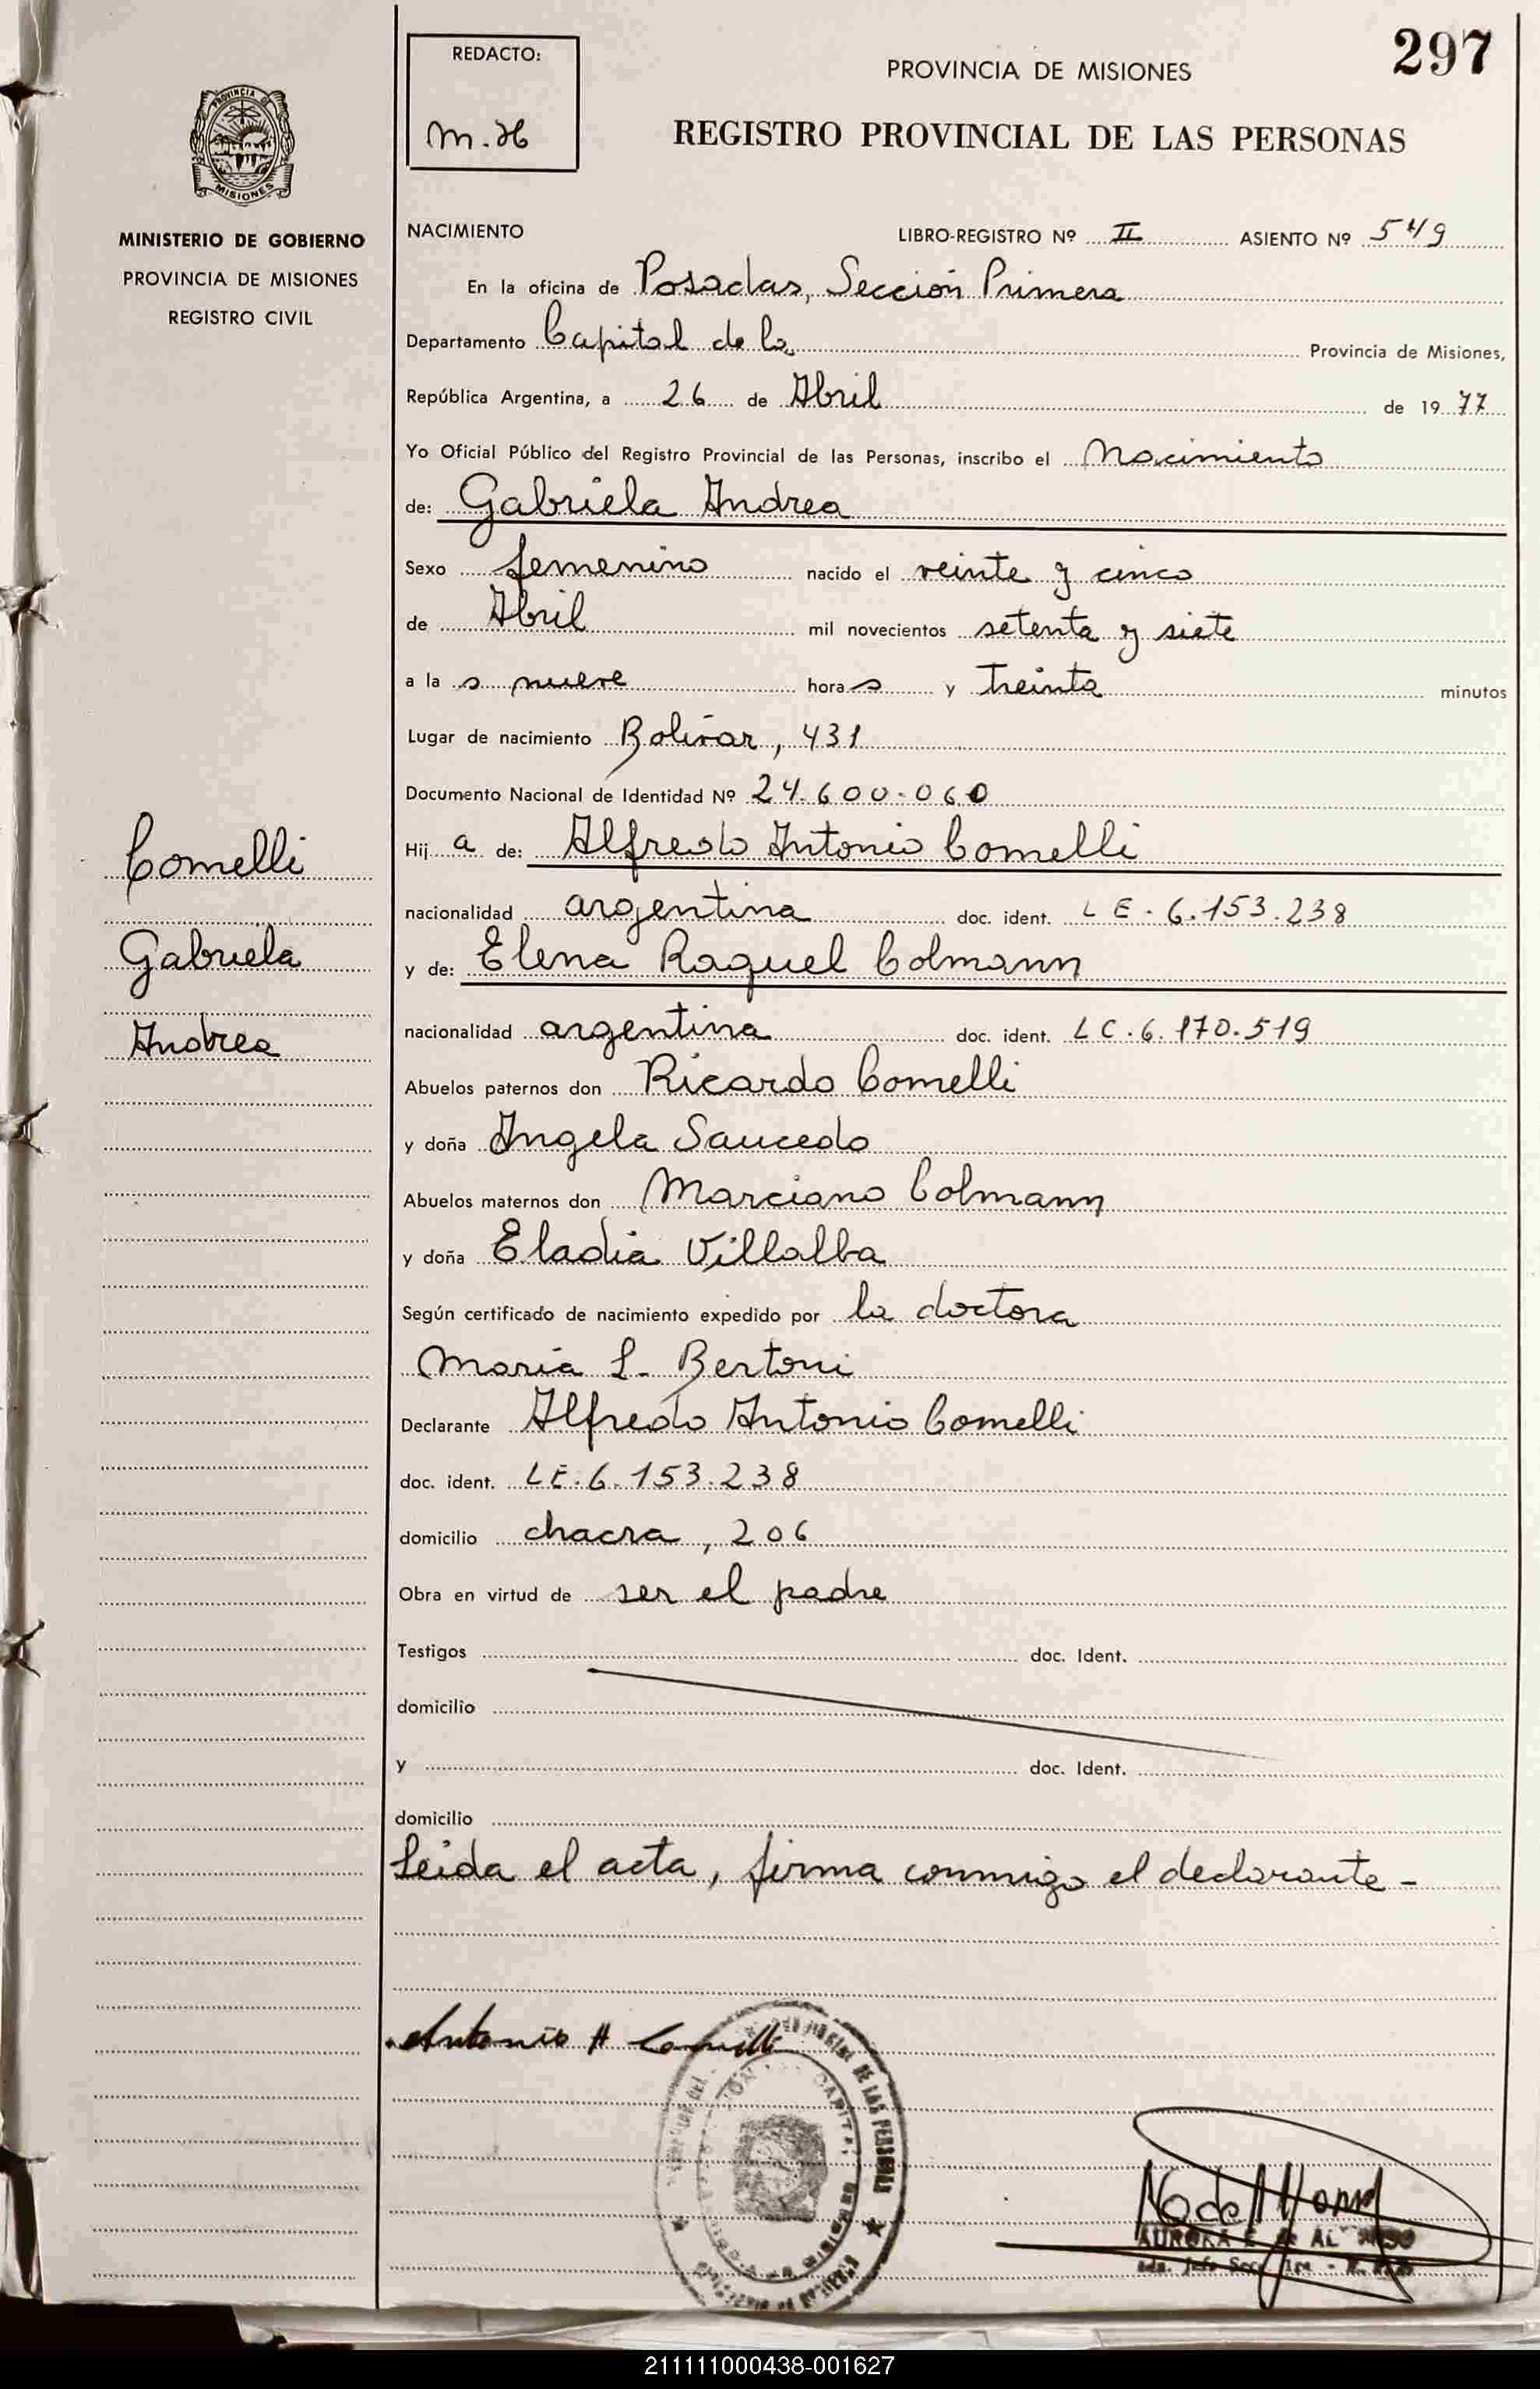 297
REDACTO:
M.H
PROVINCIA DE MISIONES
REGISTRO PROVINCIAL DE LAS PERSONAS
PROVINCIA DE
MISIONES
MINISTERIO DE GOBIERNO
PROVINCIA DE MISIONES
REGISTRO CIVIL
NACIMIENTO LIBRO-REGISTRO Nº II ASIENTO Nº 549
En la oficina de Posadas, Sección Primera
Departamento Capital de la Provincia de Misiones,
República Argentina, a 26 de Abril de 1977
Yo Oficial Público del Registro Provincial de las Personas, inscribo el Nacimiento
de: Gabriela Andrea
Sexo femenino nacido el veinte y cinco
de Abril mil novecientos setenta y siete
a la s nueve hora s y treinta minutos
Lugar de nacimiento Bolívar, 431
Documento Nacional de Identidad Nº 24.600.060
Comelli
Gabriela
Andrea
Hij a de: Alfredo Antonio Comelli
nacionalidad argentina doc. ident. LE.6.153.238
y de: Elena Raquel Colmann
nacionalidad argentina doc. ident. LC.6.170.519
Abuelos paternos don Ricardo Comelli
y doña Angela Saucedo
Abuelos maternos don Marciano Colmann
y doña Eladia Villalba
Según certificado de nacimiento expedido por la doctora
María L. Bertoni
Declarante Alfredo Antonio Comelli
doc. ident. LE.6.153.238
domicilio chacra, 206
Obra en virtud de ser el padre
Testigos doc. Ident.
domicilio
y doc. Ident.
domicilio
Leida el acta, firma conmigo el declarante -
Antonio A Comelli
DE LAS PERSONAS
AURORA E. de
211111000438-001627